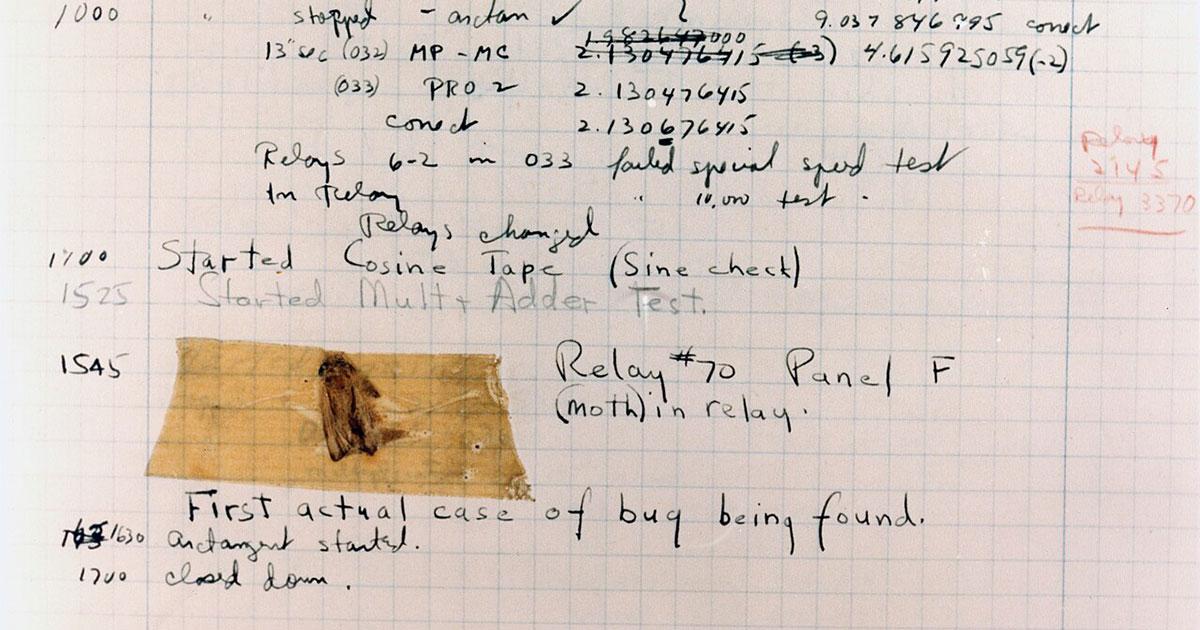 1000 " stopped - arctan ✓ 9.037 846 795 correct
1982647000
13" sec (032) MP - MC 2.130476415 (-3) 4.615925059(-2)
(033) PRO 2 2.130476415
correct 2.130676415
Relays 6-2 in 033 failed special speed test
In Relay " 10,000 test.
Relays changed
Relay
2145
Relay 3370
1700 Started Cosine Tape (Sine check)
1525 Started Mult + Adder Test.
1545 Relay #70 Panel F
(moth) in relay.
First actual case of bug being found.
1630 arctangent started.
1700 closed down.